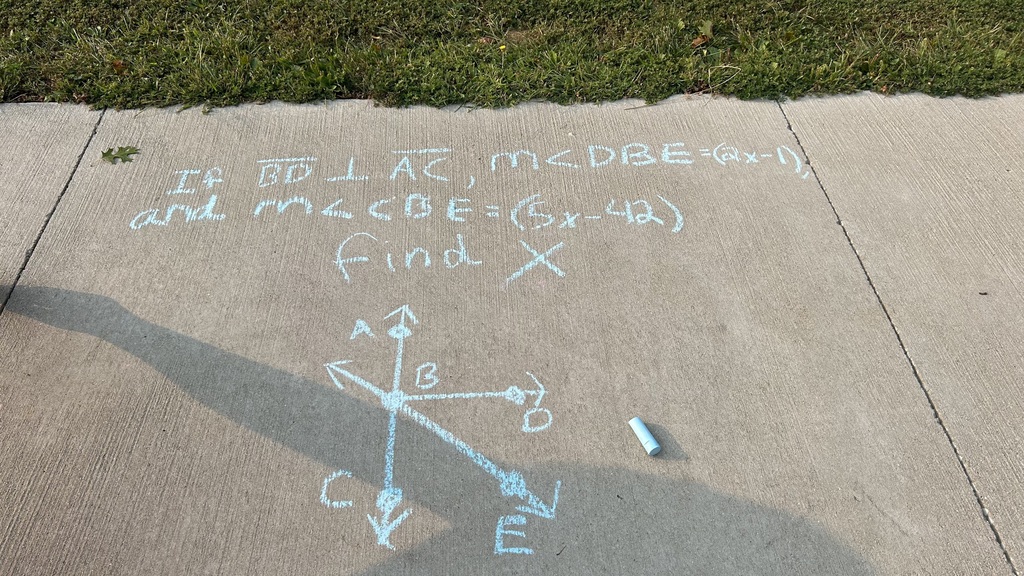 If BD ⊥ AC, m<DBE=(2x-1),
and m<CBE=(5x-42)
find X
A
B
D
C
E